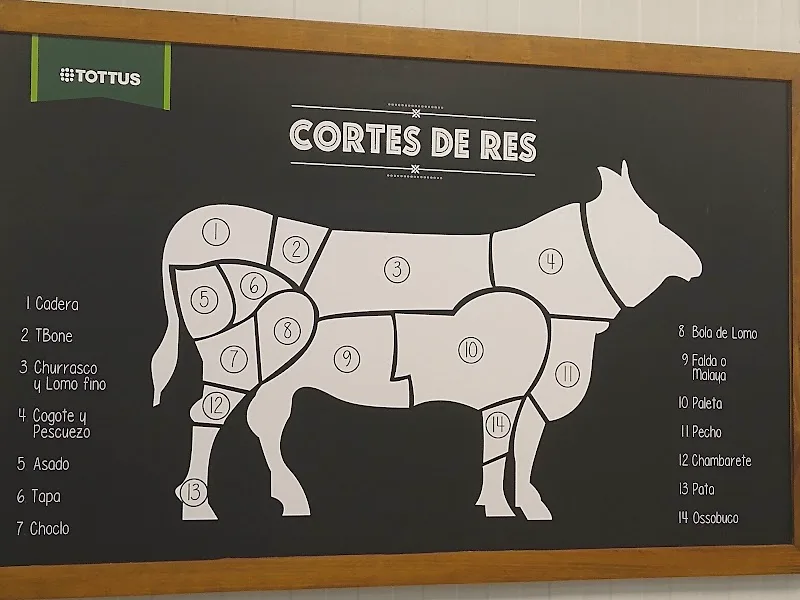 TOTTUS
CORTES DE RES
1 Cadera
2 TBone
3 Churrasco
y Lomo fino
4 Cogote y
Pescuezo
5 Asado
6 Tapa
7 Choclo
1
2
3
4
5
6
7
8
9
10
11
12
13
14
8 Bola de Lomo
9 Falda o
Malaya
10 Paleta
11 Pecho
12 Chambarete
13 Pata
14 Ossobuco